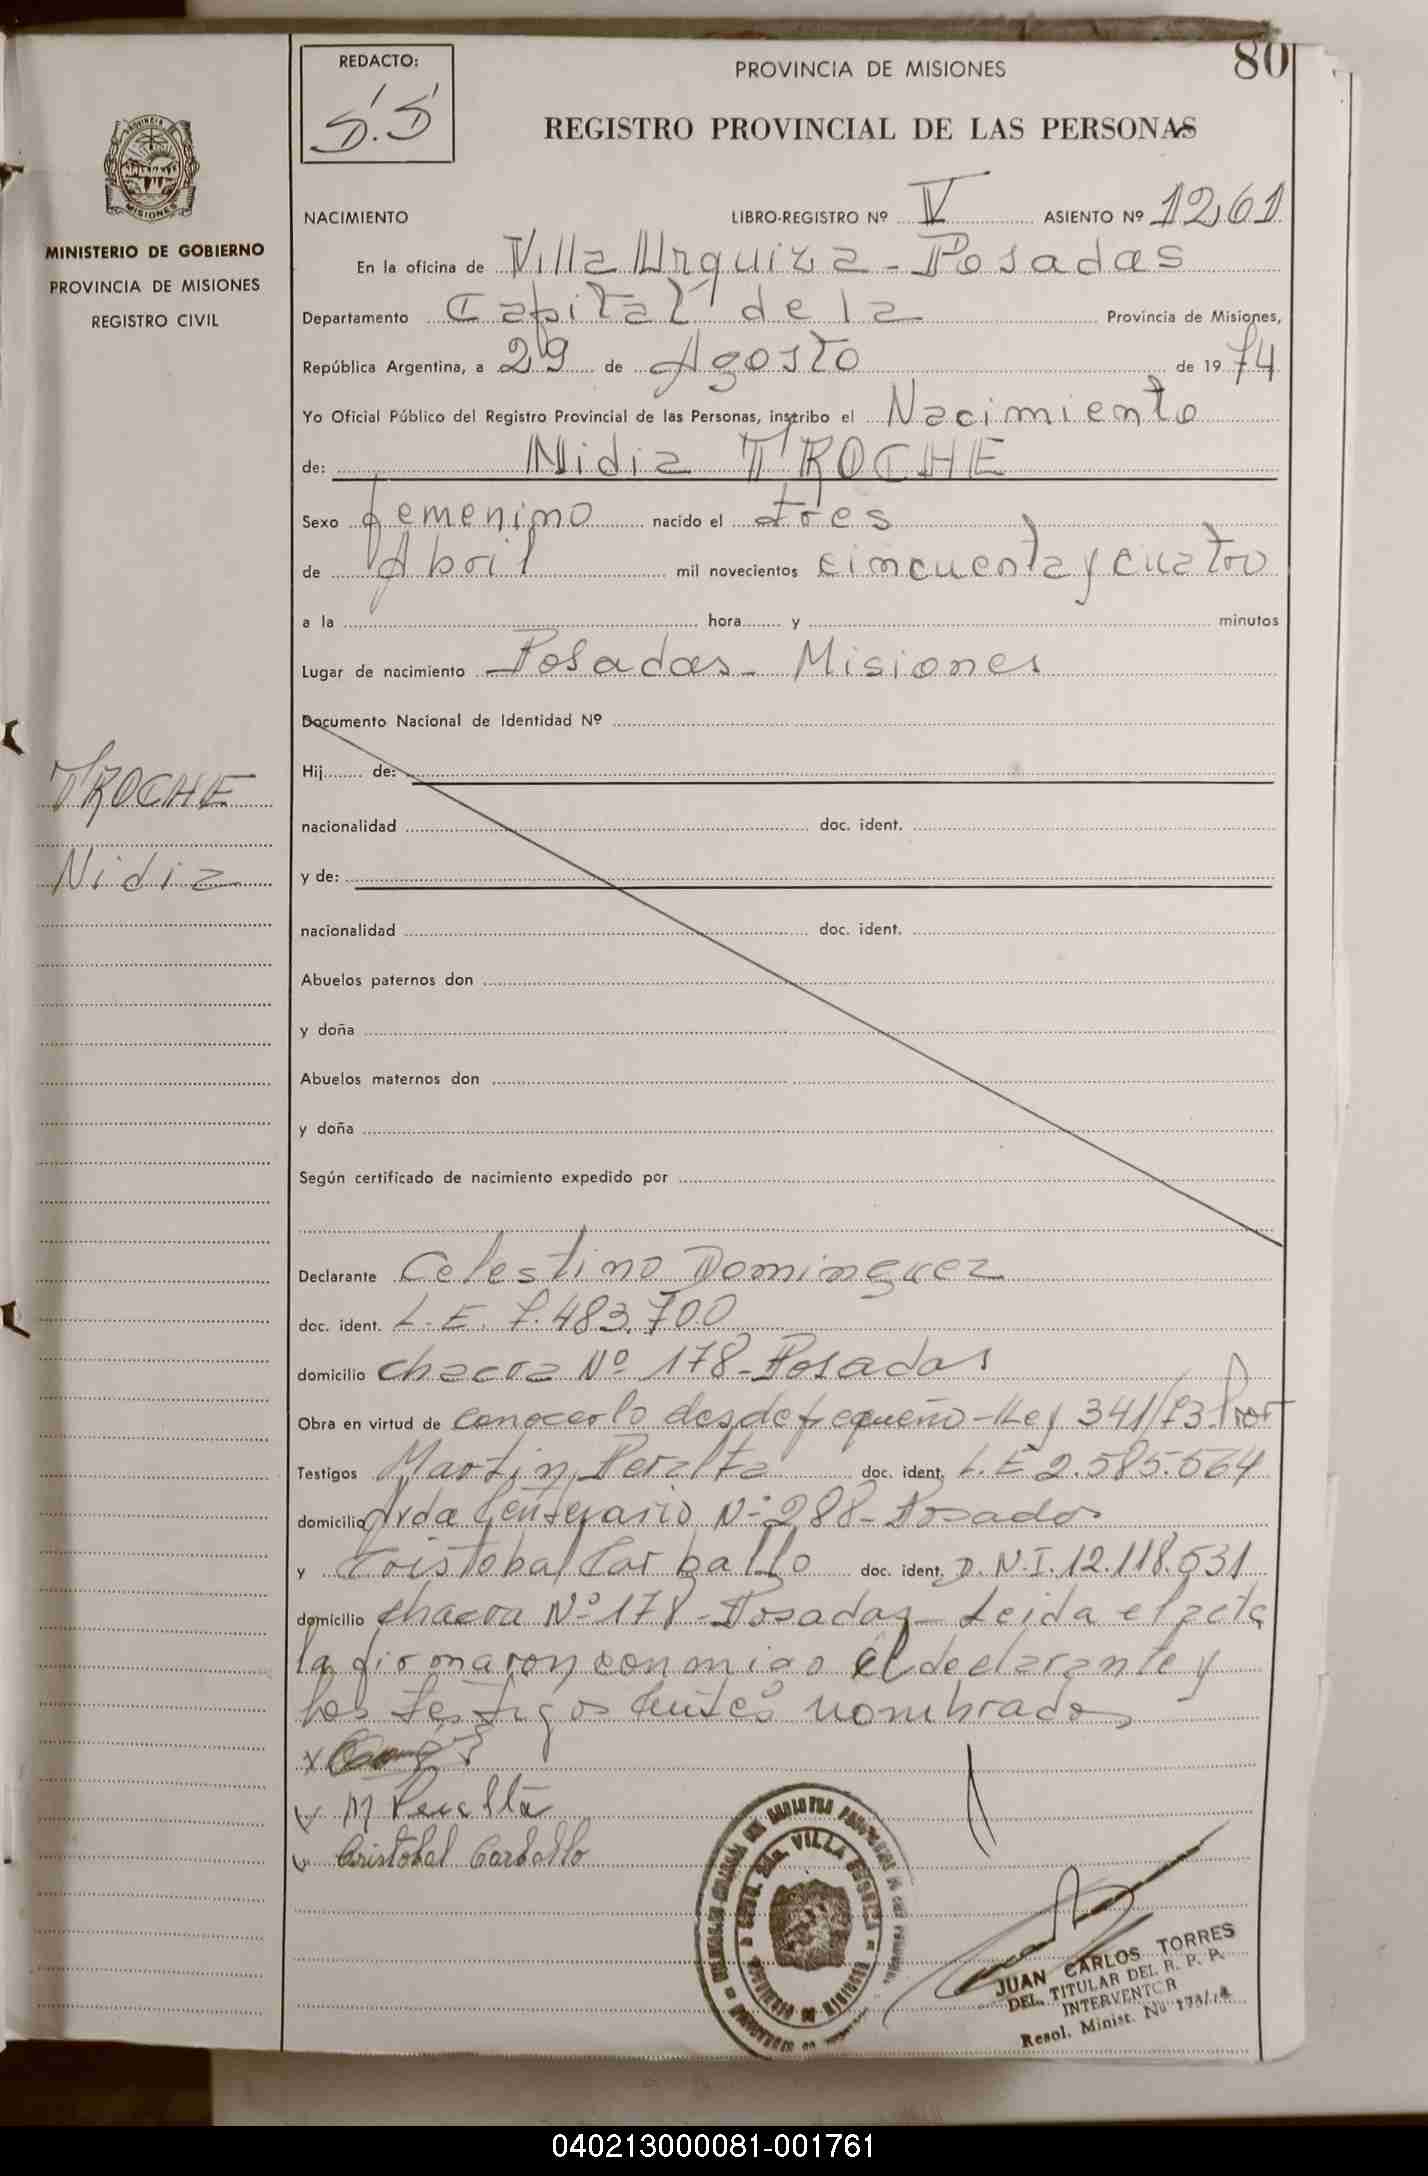 80
REDACTO:
S.S
PROVINCIA DE MISIONES
REGISTRO PROVINCIAL DE LAS PERSONAS
PROVINCIA
MISIONES
MINISTERIO DE GOBIERNO
PROVINCIA DE MISIONES
REGISTRO CIVIL
TROCHE
Nidia
NACIMIENTO LIBRO-REGISTRO Nº V ASIENTO Nº 1261
En la oficina de Villa Urquiza - Posadas
Departamento Capital de la Provincia de Misiones,
República Argentina, a 29 de Agosto de 1974
Yo Oficial Público del Registro Provincial de las Personas, inscribo el Nacimiento
de: Nidia TROCHE
Sexo femenino nacido el tres
de Abril mil novecientos cincuenta y cuatro
a la hora y minutos
Lugar de nacimiento Posadas - Misiones
Documento Nacional de Identidad Nº
Hij de:
nacionalidad doc. ident.
y de:
nacionalidad doc. ident.
Abuelos paternos don
y doña
Abuelos maternos don
y doña
Según certificado de nacimiento expedido por
Declarante Celestino Dominguez
doc. ident. L.E. 7.483.700
domicilio chacra Nº 178 - Posadas
Obra en virtud de conocerlo desde pequeño - Ley 341/73
Testigos Martin Peralta doc. ident. L.E 2.585.564
domicilio Avda Centenario Nº 288 - Posadas
y Cristobal Carballo doc. ident. D.N.I. 12.118.531
domicilio chacra Nº 178 - Posadas - Leida el acta
la firmaron conmigo el declarante y
los testigos antes nombrados
x
M Peralta
Cristobal Carballo
VILLA URQUIZA
JUAN CARLOS TORRES
DEL. TITULAR DEL R. P. P.
INTERVENTOR
Resol. Minist. Nº
040213000081-001761